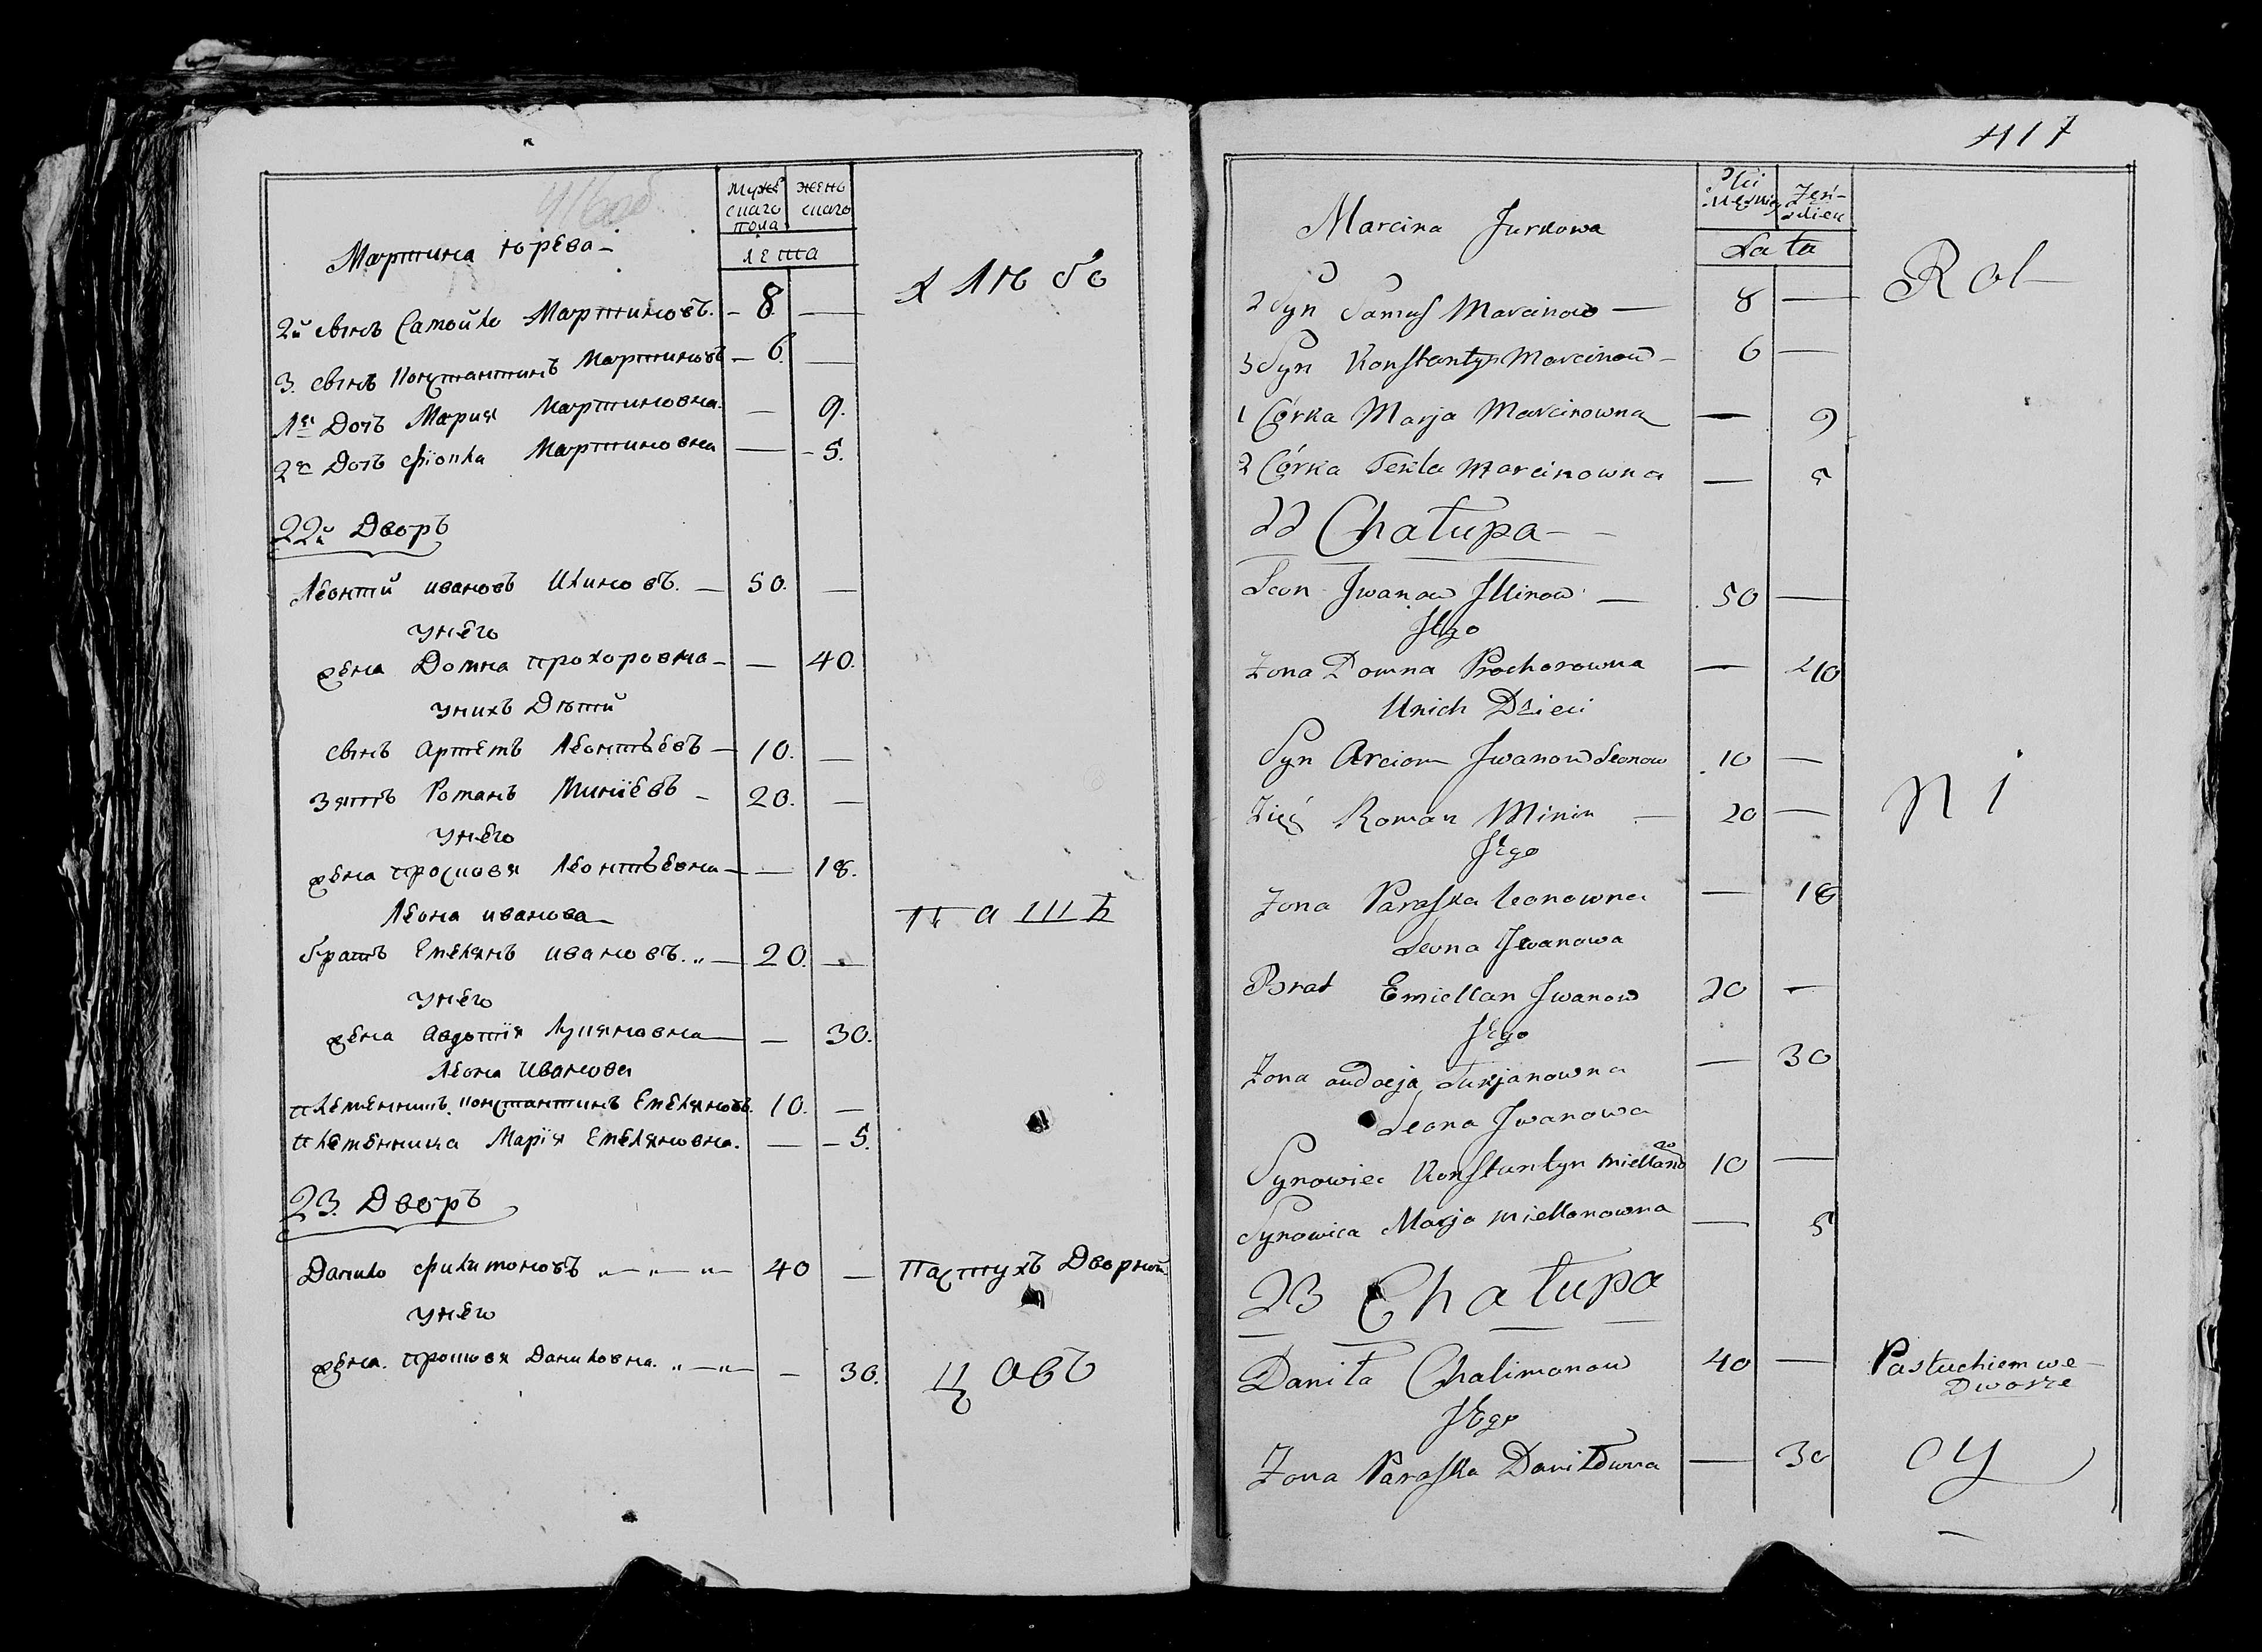 Мартина юрева
Мужескаго пола
женскаго
лета
хлѣбо
2й сынъ Самойло Мартиновъ. 8. —
3. сынъ Константинъ Мартиновъ — 6 —
1я Дочь Мария Мартиновна. — 9.
2я Дочь фіокла Мартиновна — 5.
22й Дворъ
Леонтій ивановъ Илиновъ. — 50. —
унего
жена Домна прохоровна — — 40.
унихъ Дѣтій
сынъ артемъ Леонтьевъ — 10. —
зять Романъ Миніевъ — 20. —
унего
жена просковя Леонтьевна — — 18.
Леона иванова
пашъ
братъ Емелянъ ивановъ. — 20. —
унего
жена авдотія Лукяновна — — 30.
Леона иванова
племенникъ константинъ Емеляновъ. 10. —
племенница Марія Емеляновна. — 5.
23. Дворъ
Данило филимоновъ 40 — пастухъ Дворный
унего
жена. просковя Даниловна. — 30.
цовъ
417
Marcina Jurkowa
Płci Męskiej
Żeńskiey
Lata
Rol
2 Syn Samuś Marcinow — 8 —
3 Syn Konstantyn Marcinow — 6 —
1 Córka Marja Marcinowna — 9
2 Córka Tekla Marcinowna — 5
22 Chałupa
Leon Jwanow Jllinow — 50 —
Jego
Żona Domna Prochorowna — 40
Unich Dzieci
Syn Arciom Jwanow Leonow 10 —
ni
Zięć Roman Minin — 20 —
Jego
Żona Paraska Leonowna — 18
Leona Jwanowa
Brat Emiellan Jwanow 20 —
Jego
Żona Audocja Łukjanowna — 30
Leona Jwanowa
Synowiec Konstantyn Miellanow 10 —
Synowica Marja Miellanowna — 5
23 Chałupa
Daniła Chalimonow 40 — Pastuchiem we Dworze
Jego
Żona Paraska Daniłowna — 30
cy